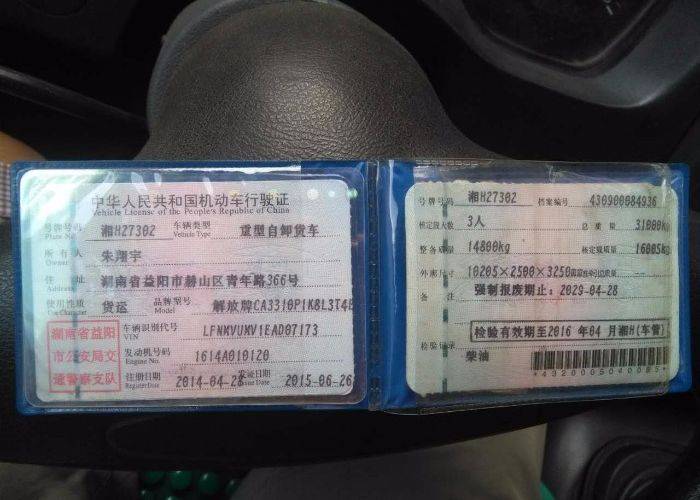 中华人民共和国机动车行驶证
Vehicle License of the People's Republic of China
号牌号码 湘H27302 车辆类型 重型自卸货车
Plate No. Vehicle Type
所有人 朱翔宇
Owner
住址 湖南省益阳市赫山区青年路366号
Address
使用性质 货运 品牌型号 解放牌CA3310P1K8L3T4E
Use Character Model
湖南省益阳
市公安局交
通警察支队
车辆识别代号 LFNMVUMV1EAD07173
VIN
发动机号码 1614A010120
Engine No.
注册日期 2014-04-28 发证日期 2015-06-26
Register Date Issue Date
号牌号码 湘H27302 档案编号 430900084936
核定载人数 3人 总质量 31000kg
整备质量 14800kg 核定载质量 16005kg
外廓尺寸 10205×2500×3250
备注 强制报废期止：2029-04-28
检验有效期至2016年04月湘H(车管)
检验记录
柴油